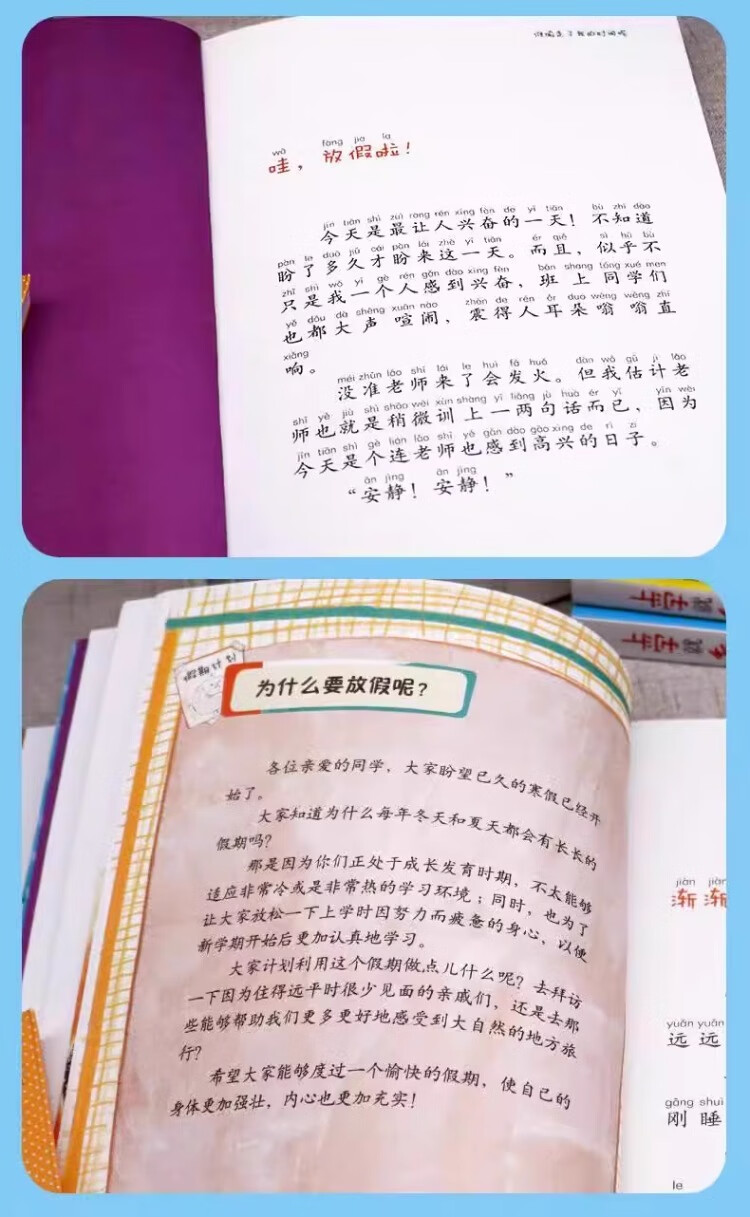 谁偷走了我的时间呢
wā fàng jià la
哇，放假啦！
jīn tiān shì zuì ràng rén xīng fèn de yì tiān bù zhī dào
今天是最让人兴奋的一天！不知道
pàn le duō jiǔ cái pàn lái zhè yì tiān ér qiě sì hū bù
盼了多久才盼来这一天。而且，似乎不
zhǐ shì wǒ yí gè rén gǎn dào xīng fèn bān shang tóng xué men
只是我一个人感到兴奋，班上同学们
yě dōu dà shēng xuān nào zhèn de rén ěr duo wēng wēng zhí
也都大声喧闹，震得人耳朵嗡嗡直
xiǎng
响。
méi zhǔn lǎo shī lái le huì fā huǒ dàn wǒ gū jì lǎo
没准老师来了会发火。但我估计老
shī yě jiù shì shāo wēi xùn shàng yì liǎng jù huà ér yǐ yīn wèi
师也就是稍微训上一两句话而已，因为
jīn tiān shì gè lián lǎo shī yě gǎn dào gāo xìng de rì zi
今天是个连老师也感到高兴的日子。
ān jìng ān jìng
“安静！安静！”
假期计划
为什么要放假呢？
各位亲爱的同学，大家盼望已久的寒假已经开
始了。
大家知道为什么每年冬天和夏天都会有长长的
假期吗？
那是因为你们正处于成长发育时期，不太能够
适应非常冷或是非常热的学习环境；同时，也为了
让大家放松一下上学时因努力而疲惫的身心，以便
新学期开始后更加认真地学习。
大家计划利用这个假期做点儿什么呢？去拜访
一下因为住得远平时很少见面的亲戚们，还是去那
些能够帮助我们更多更好地感受到大自然的地方旅
行？
希望大家能够度过一个愉快的假期，使自己的
身体更加强壮，内心也更加充实！
jiàn jiàn
渐渐
yuǎn yuǎn
远远
gāng shuì
刚睡
le